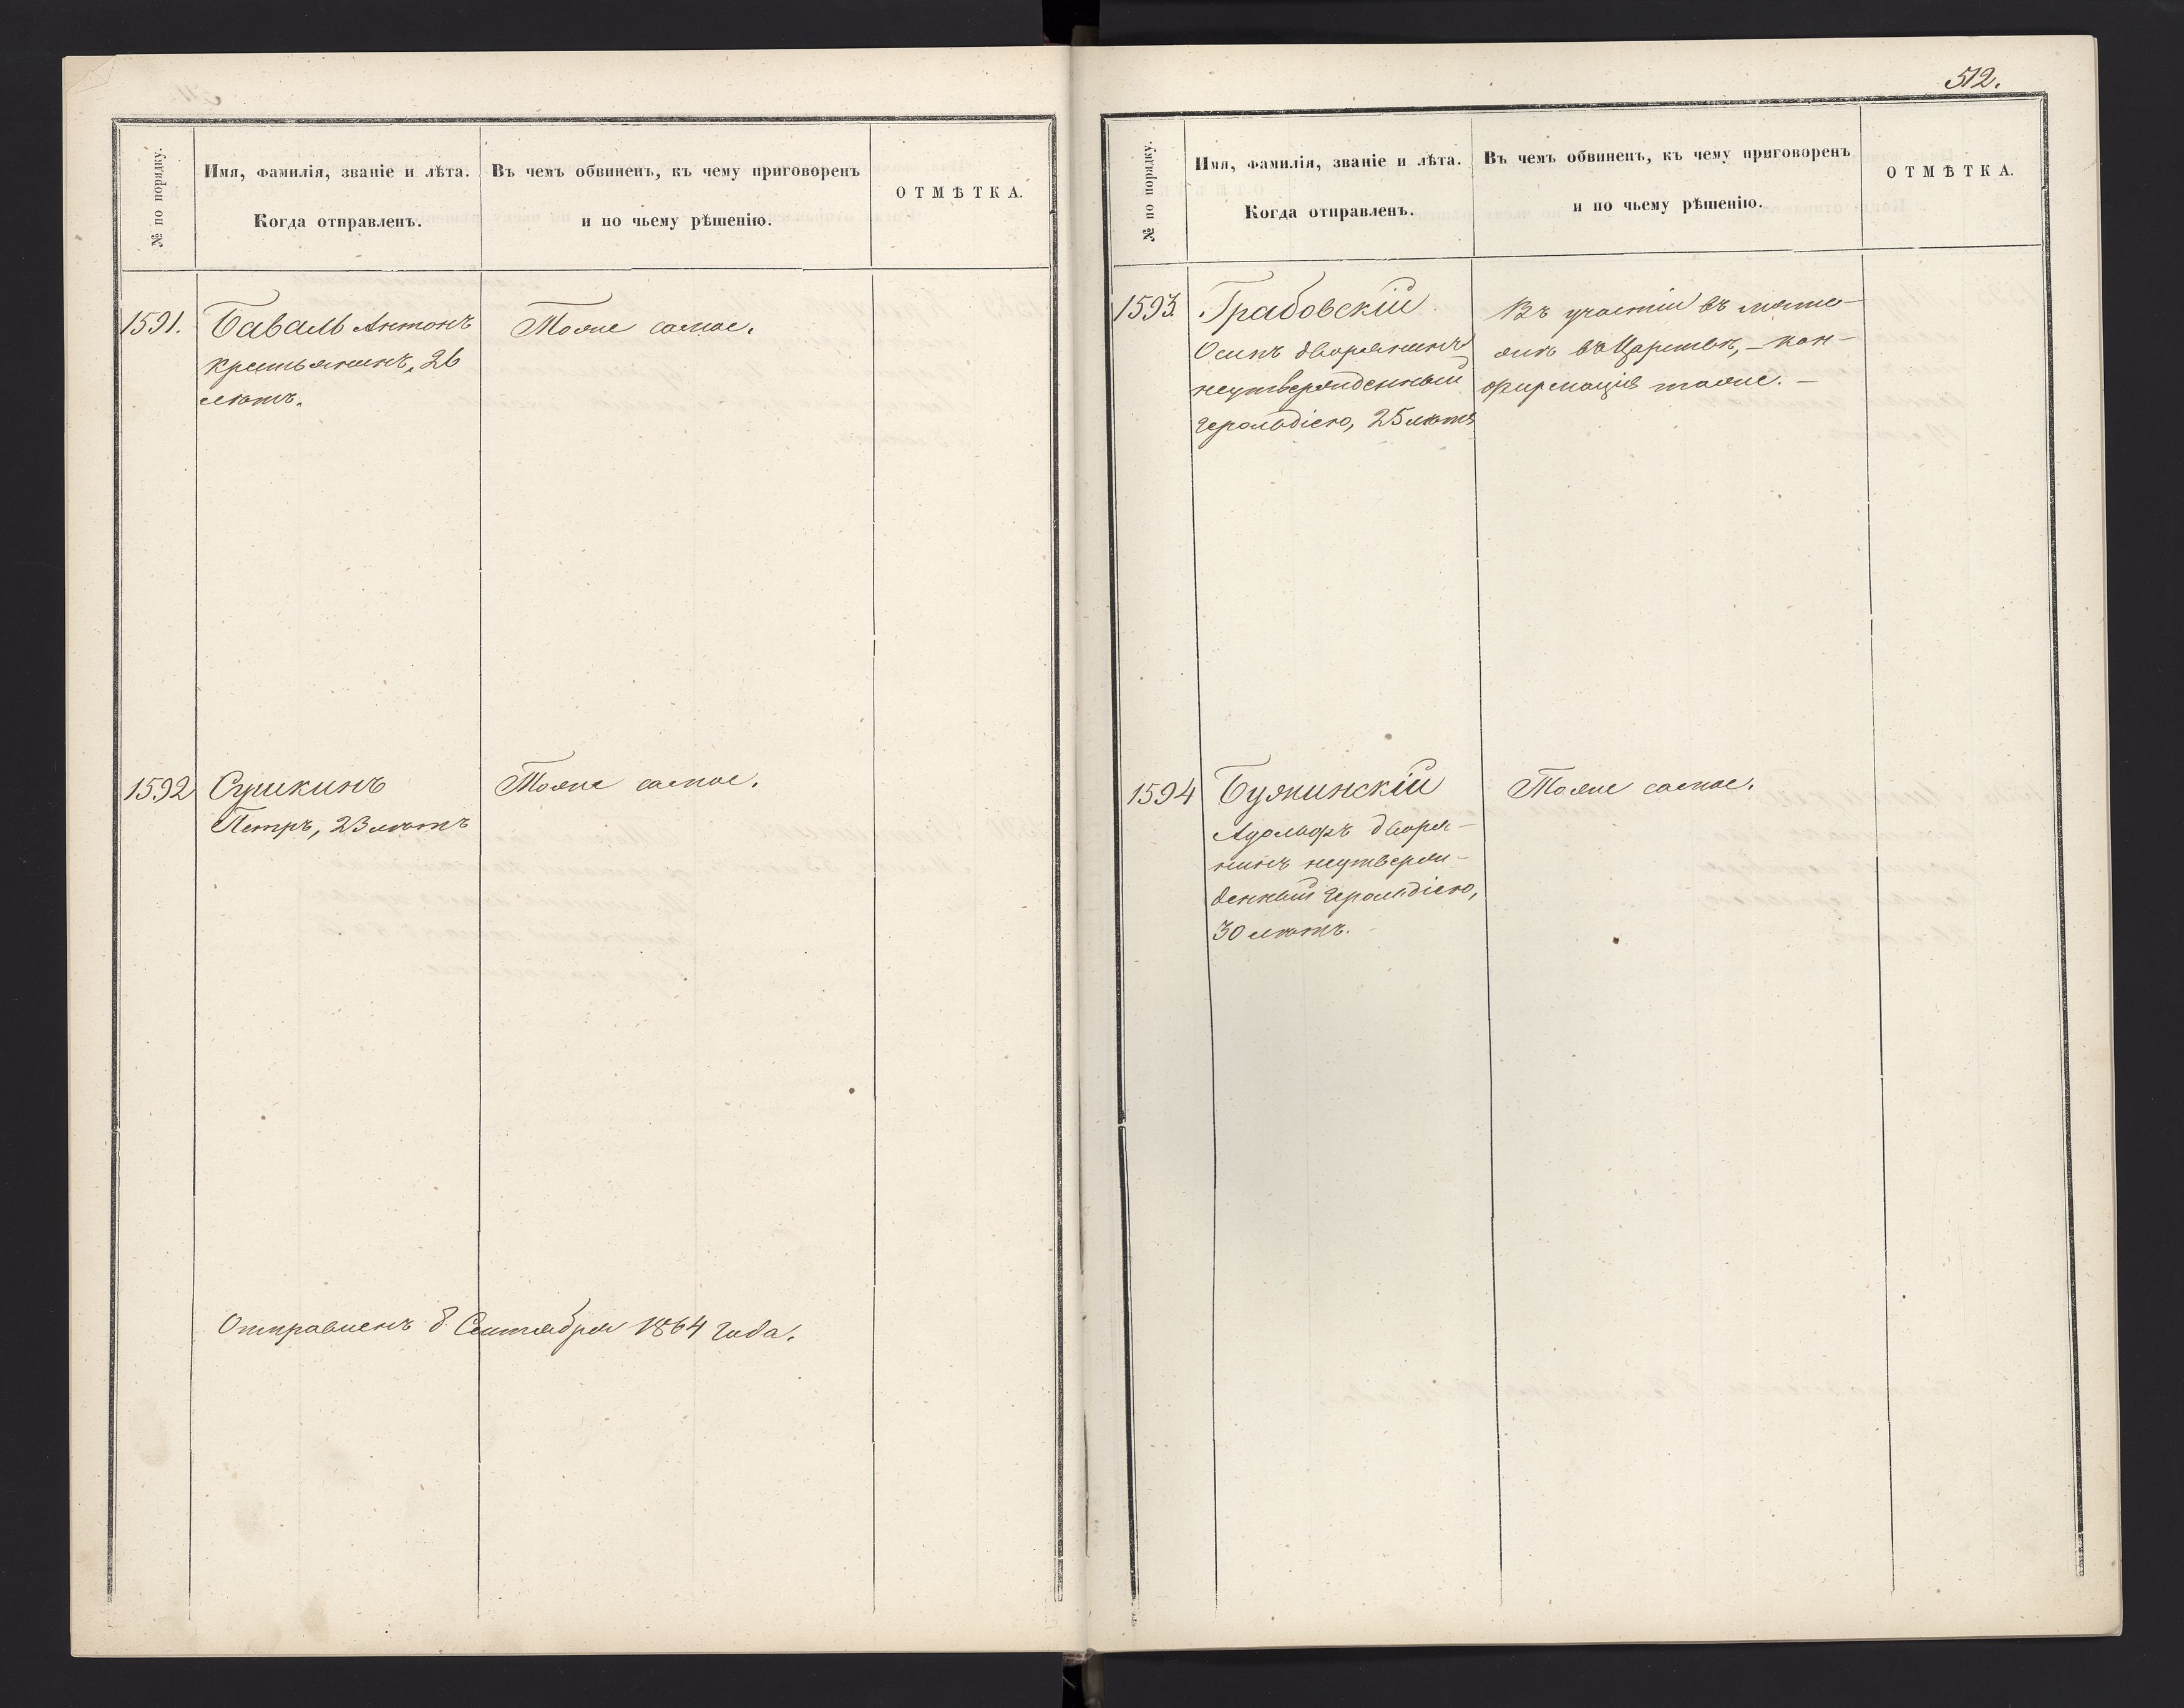 № по порядку.
Имя, фамилія, званіе и лѣта.
Когда отправленъ.
Въ чемъ обвиненъ, къ чему приговоренъ
и по чьему рѣшенію.
ОТМѢТКА.
1591.
Баваль Антонъ
крестьянинъ, 26
лѣтъ.
Тоже самое.
1592
Сушкинъ
Петръ, 23 лѣтъ
Тоже самое.
Отправленъ 8 Сентября 1864 года.
512.
№ по порядку.
Имя, фамилія, званіе и лѣта.
Когда отправленъ.
Въ чемъ обвиненъ, къ чему приговоренъ
и по чьему рѣшенію.
ОТМѢТКА.
1593.
Грабовскій
Осипъ дворянинъ
неутвержденный
Герольдіею, 25 лѣтъ
Въ участіи въ мяте-
жѣ въ Царствѣ, - кон-
фирмація тоже. -
1594
Бужинскій
Адольфъ дворя-
нинъ неутверж-
денный Герольдіею,
30 лѣтъ.
Тоже самое.